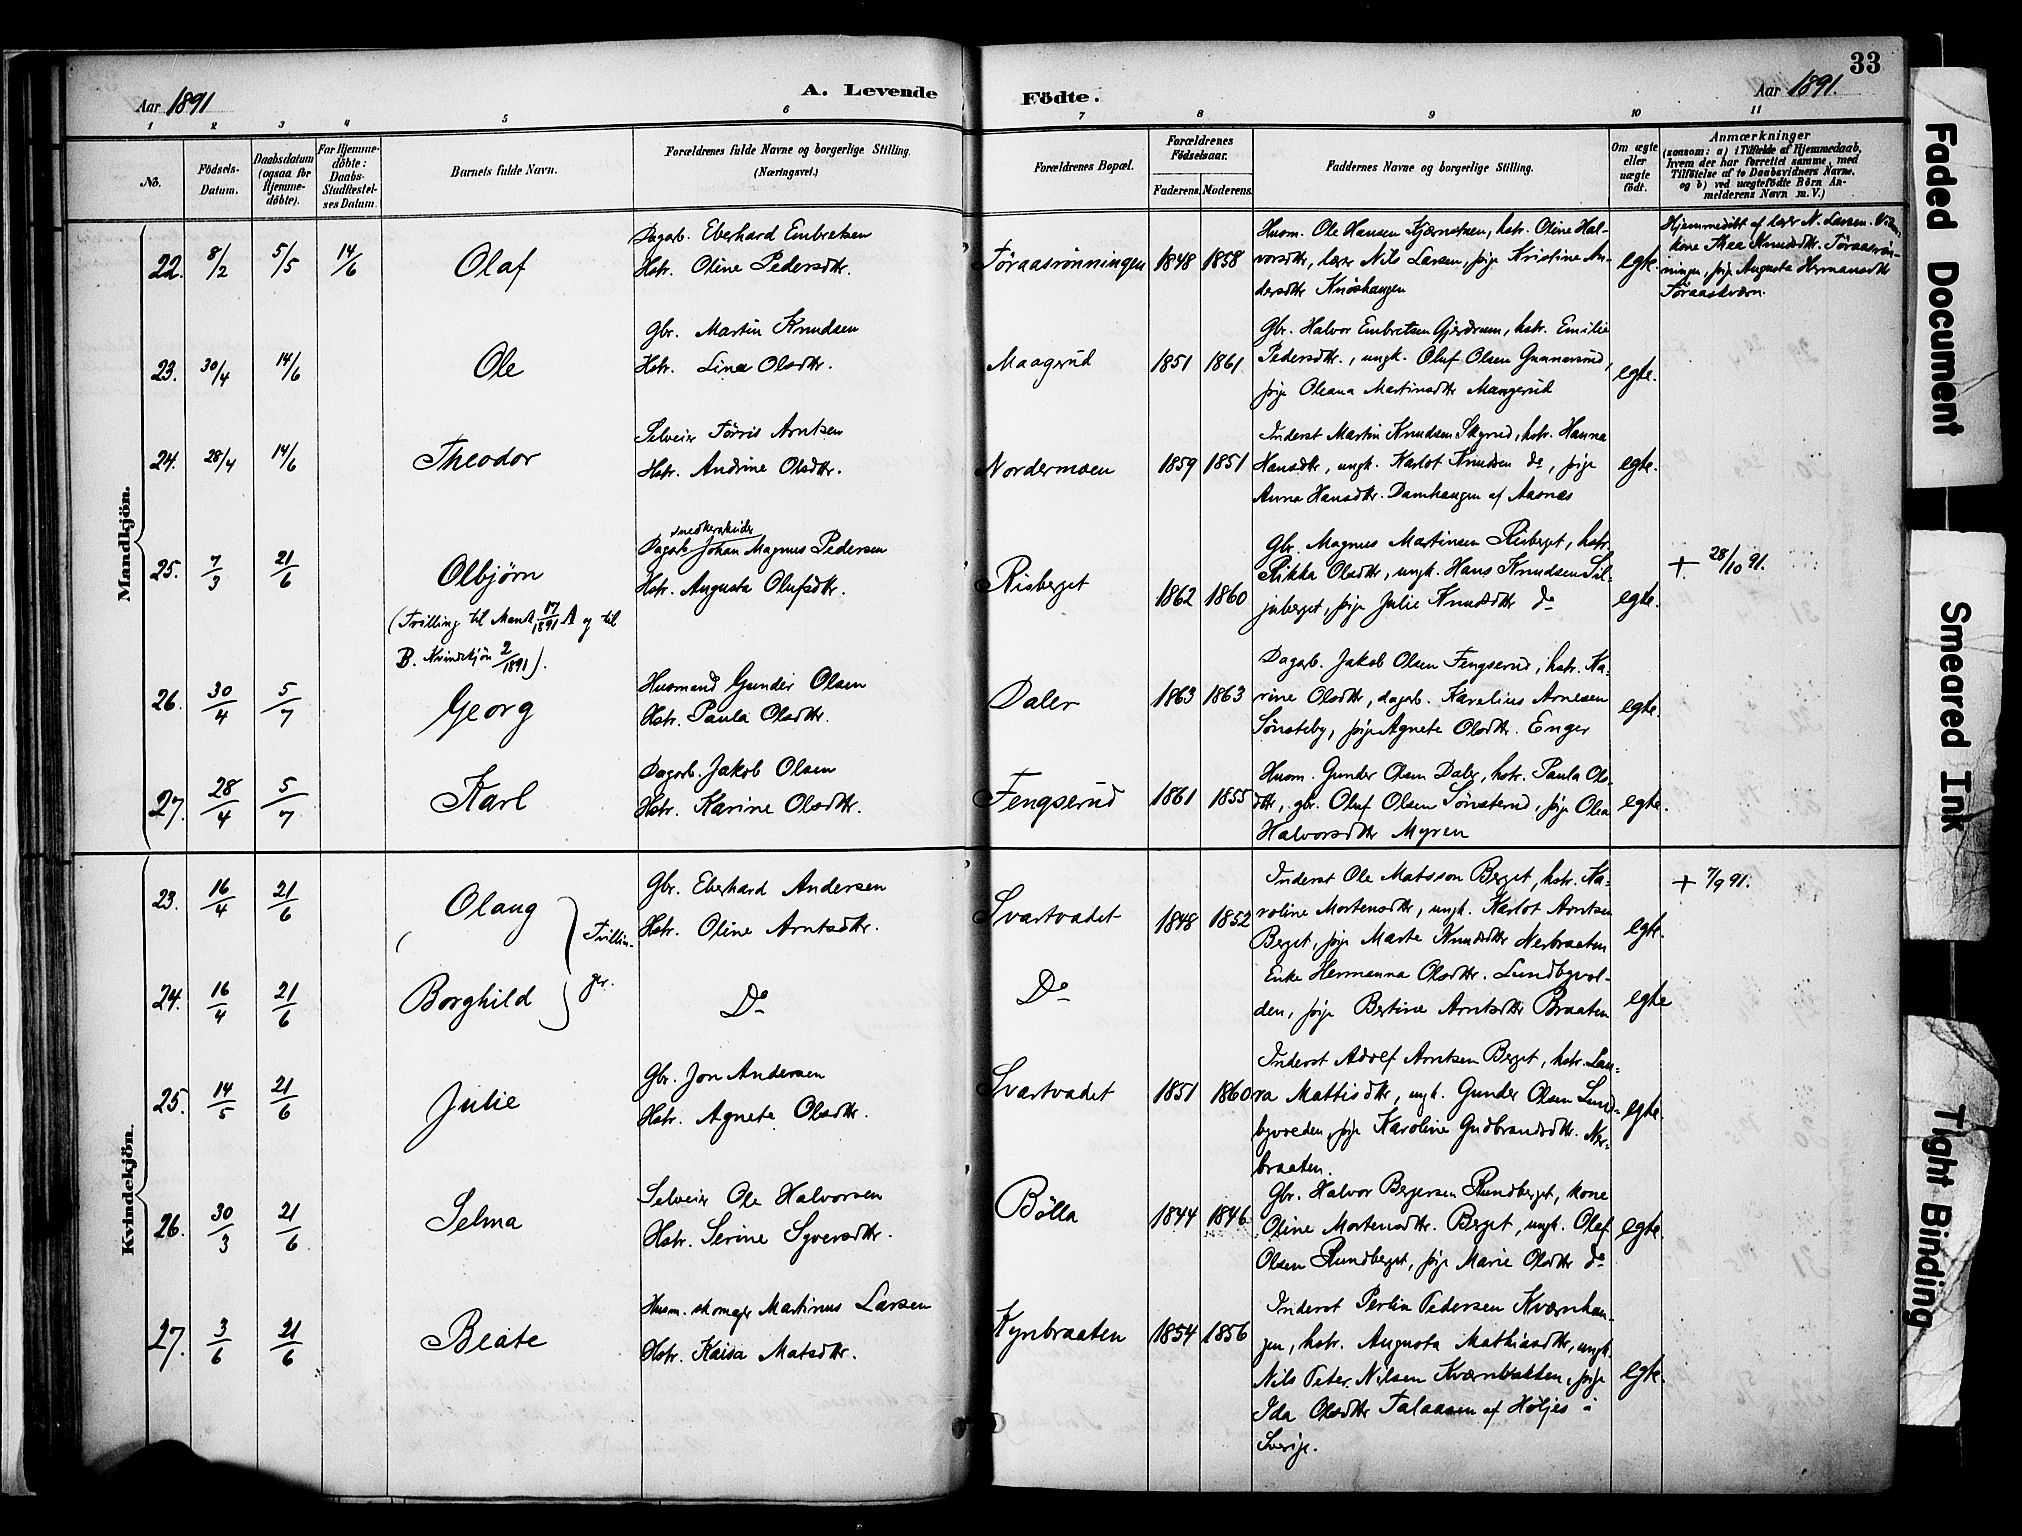 33
Aar 1891
A. Levende
Födte.
Aar 1891.
1 2 3 4 5 6 7 8 9 10 11
No.
Födsels-
Datum.
Daabsdatum
(ogsaa for
Hjemme-
döbte).
For Hjemme-
döbte:
Daabs-
Stadfæstel-
ses Datum.
Barnets fulde Navn.
Forældrenes fulde Navne og borgerlige Stilling.
(Næringsvei.)
Forældrenes Bopæl.
Forældrenes
Födselsaar.
Faderens. Moderens.
Faddernes Navne og borgerlige Stilling.
Om ægte
eller
uægte
födt.
Anmærkninger
(saasom: a) i Tilfælde af Hjemmedaab,
hvem der har forrettet samme, med
Tilföielse af to Daabsvidners Navne,
og b) ved uægtefödte Börn An-
melderens Navn m.V.)
Mandkjön.
22. 8/2 5/5 14/6 Olaf
Dagarb. Eberhard Embretsen
Hstr. Oline Pedersdtr.
Föraasrönningen 1848 1858
Husm. Ole Hansen Kjærnetsen, hstr. Oline Hal-
vorsdtr, lærer Nils Larsen, pige Kristine An-
dersdtr Knöshaugen
egte.
Hjemmedöbt af lærer N. Larsen.
kone Thea Amundsdtr. Föraasrön-
ningen, pige Augusta Hermansdtr
Föraaskværn.
23. 30/4 14/6 Ole
Gbr. Martin Knudsen
Hstr. Lina Olsdtr.
Maagerud 1851 1861
Gbr. Halvor Embretsen Gjerdrum, hstr. Emilie
Pedersdtr., ungk. Oluf Olsen Gunnersrud,
pige Oleana Martinsdtr Mangerud
egte.
24. 28/4 14/6 Theodor
Selveier Törris Arntsen
Hstr. Andrine Olsdtr.
Nordermoen 1859 1851
Inderst Martin Knudsen Skyrud, hstr. Hanna
Hansdtr, ungk. Karlot Knudsen do, pige
Anna Hansdtr. Damhaugen af Aasnes
egte.
25. 7/3 21/6 Olbjørn
(Tvilling til Mandk. 17/1891 A og til
B. Kvindekjön 2/1891).
snedkersvend
Dagarb. Johan Magnus Pedersen
Hstr. Augusta Olufsdtr.
Risberget 1862 1860
Gbr. Magnus Martinsen Risberget, hstr.
Rikka Olsdtr, ungk. Hans Knudsen Sil-
juberget, pige Julie Knudsdtr do
egte.
+ 28/10 91.
26. 30/4 5/7 Georg
Husmand Gunder Olsen
Hstr. Paula Olsdtr.
Daler 1863 1863
Dagarb. Jakob Olsen Fengserud, hstr. Ka-
rine Olsdtr, dagarb. Karelius Arnesen
Sönsteby, pige Agnete Olsdtr. Enger
egte.
27. 28/4 5/7 Karl
Dagarb. Jakob Olsen
Hstr. Karine Olsdtr.
Fengserud 1861 1855
Husm. Gunder Olsen Daler, hstr. Paula Ols-
dtr, gbr. Oluf Olsen Sönsterud, pige Olea
Halvorsdtr Myren
egte.
Kvindekjön.
23. 16/4 21/6 Olaug
Tvillin-
ger.
Gbr. Eberhard Andersen
Hstr. Oline Arntsdtr.
Svartvadet 1848 1852
Inderst Ole Matsson Berget, hstr. Ka-
roline Mortensdtr, ungk. Karlot Arntsen
Berget, pige Marte Knudsdtr Nerbraaten
egte.
+ 7/9 91.
24. 16/4 21/6 Borghild
Do
Do
Enke Hermanna Olsdtr. Lundbyvol-
den, pige Bertine Arntsdtr Braaten
egte
25. 14/5 21/6 Julie
Gbr. Jon Andersen
Hstr. Agnete Olsdtr.
Svartvadet 1851 1860
Inderst Adolf Arntsen Berget, hstr. Lau-
ra Mattisdtr, ungk. Gunder Olsen Lund-
byvolden, pige Karoline Gudbrandsdtr. Ner-
braaten.
egte.
26. 30/3 21/6 Selma
Selveier Ole Halvorsen
Hstr. Serine Syversdtr.
Bölla 1844 1846
Gbr. Halvor Bergersen Rundberget, kone
Oline Mortensdtr. Berget, ungk. Olaf
Olsen Rundberget, pige Marie Olsdtr do
egte.
27. 3/6 21/6 Beate
Husm. skomager Martinus Larsen
Hstr. Kaisa Matsdtr.
Kynbraaten 1854 1856
Inderst Perlia Pedersen Kværnhau-
gen, hstr. Augusta Mathiasdtr, ungk.
Nils Peter Nilsen Kværnbakken, pige
Ida Olsdtr Talaasen af Höljes i
Sverige.
egte.
Faded Document
Smeared Ink
Tight Binding